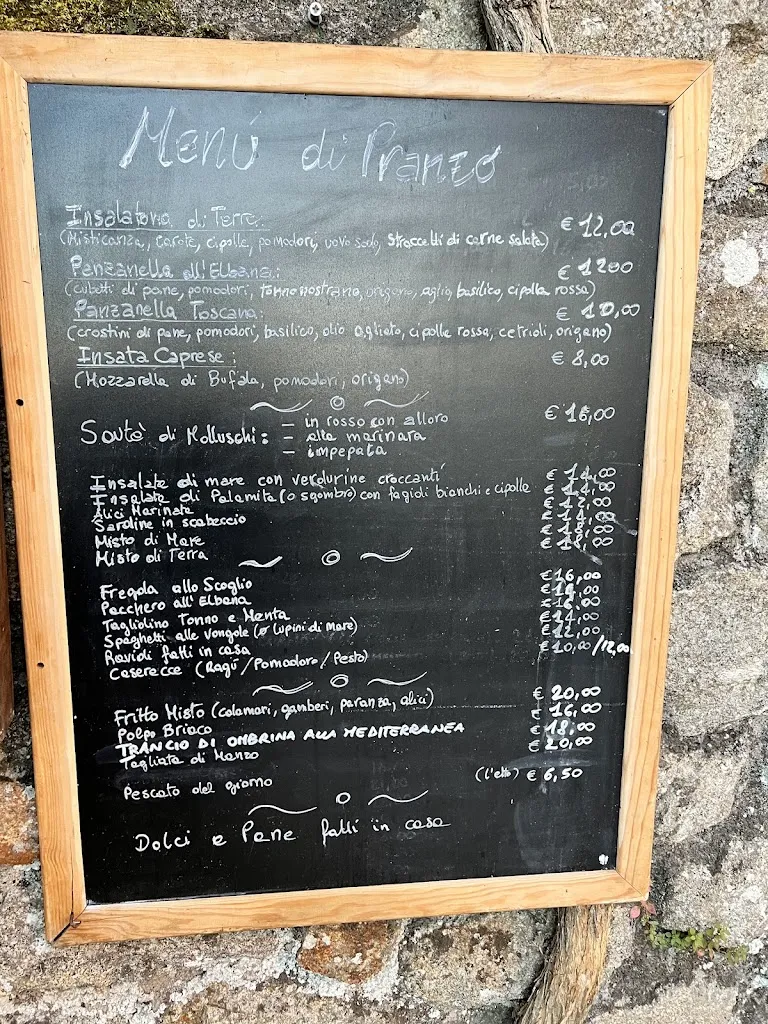 Menú di Pranzo
Insalatona di Terra: € 12,00
(Misticanza, carote, cipolle, pomodori, uovo sodo, straccetti di carne salata)
Panzanella all'Elbana: € 1200
(cubetti di pane, pomodori, tonno nostrano, origano, aglio, basilico, cipolla rossa)
Panzanella Toscana: € 10,00
(crostini di pane, pomodori, basilico, olio agliato, cipolle rossa, cetrioli, origano)
Insata Caprese: € 8,00
(Mozzarella di Bufala, pomodori, origano)
Soutè di Molluschi: - in rosso con alloro € 16,00
- alla marinara
- impepata
Insalata di mare con verdurine croccanti
Insalata di Palamita (o sgombro) con fagioli bianchi e cipolle
Alici Marinate
Sardine in scabeccio
Misto di Mare
Misto di Terra
Fregola allo Scoglio € 16,00
Pacchero all'Elbana
Tagliolino Tonno e Menta
Spaghetti alle Vongole (o lupini di mare) € 14,00
Ravioli fatti in casa € 12,00
Caserecce (Ragù/Pomodoro/Pesto) € 10,00/12,00
Fritto Misto (calamari, gamberi, paranza, alici) € 20,00
Polpo Briaco € 16,00
TRANCIO DI OMBRINA ALLA MEDITERRANEA € 18,00
Tagliata di Manzo € 20,00
Pescato del giorno (l'etto) € 6,50
Dolci e Pane fatti in casa